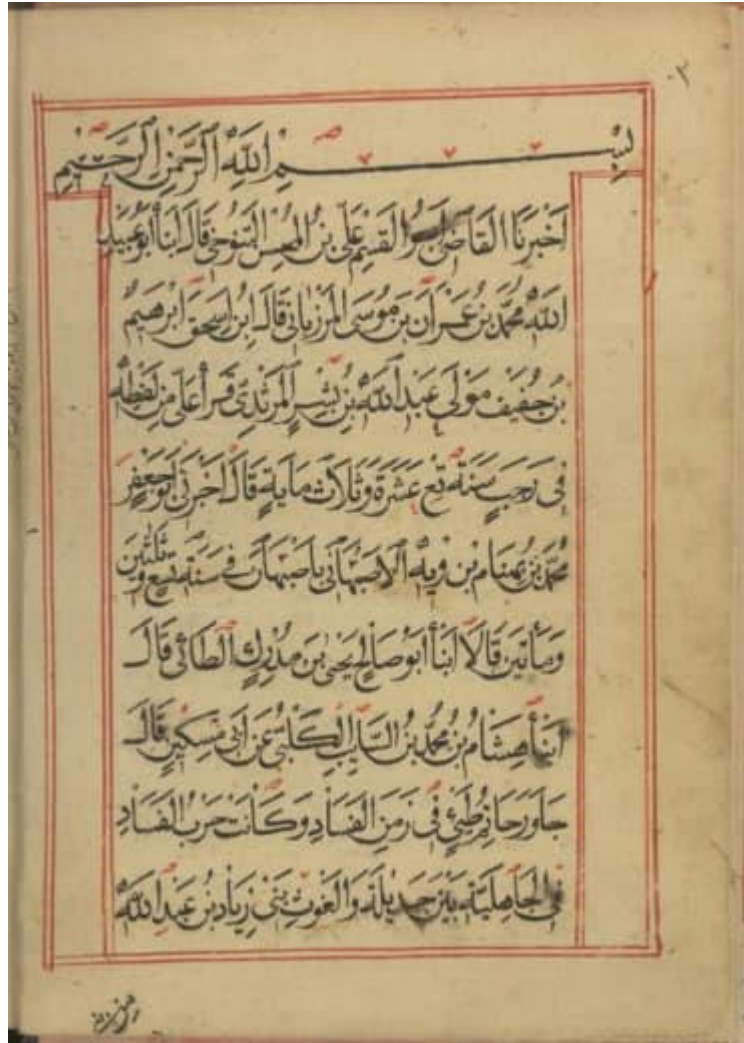 ٣
بِسْمِ اللَّهِ الرَّحْمَنِ الرَّحِيمِ
اَخْبَرَنَا القَاضِى ابو القسِمِ عَلِىُّ بْنُ المُحسِّن التَّنُوخِى قَالَ ابنَأ ابُو عُبَيدِ
اللَّهِ مُحَمَّدُ بْنُ عِمْرَان بن مُوسَى المَرْزُبَانِى قَالَ ابن اسحق ابرٰهيم
بن خفيف مَوْلَى عَبْدِ اللَّهِ بْنِ بِشْرٍ المَرْثَدِىّ قَرَأَ عَلَىَّ مِن لَفظِه
فِى رَجَبٍ سَنَة تِسْع عَشَرَة وَثَلَاث مِايَةٍ قَالَ اَخْبَرَنِى ابُو جَعفَرٍ
مُحَمَّدُ بْنُ بن الاصبَهَانِى بِاَصْبَهَان فِى سَنَة تِسع وَثَلٰثين
وَمِأَتَين قَالَا ابنأ ابُو صَالِحٍ يَحيَى بن مُدْرِكٍ الطَّائِى قَالَ
ابنأ هِشَامُ بْنُ مُحَمَّدِ بْنُ السَّايِبِ الكَلْبِىُّ عَن اَبِى مِسْكِينٍ قَالَ
جَاوَرَ حَاتِمُ طَيّىءٍ فِى زَمَنِ الفَسَادِ وَكَانَت حَرْبُ الفَسَادِ
فِى الجَاهِلِيَّة بَيْنَ جَدِيلَةَ وَالغَوثِ بَنِى زِيَاد بن عَبْدِ اللَّه